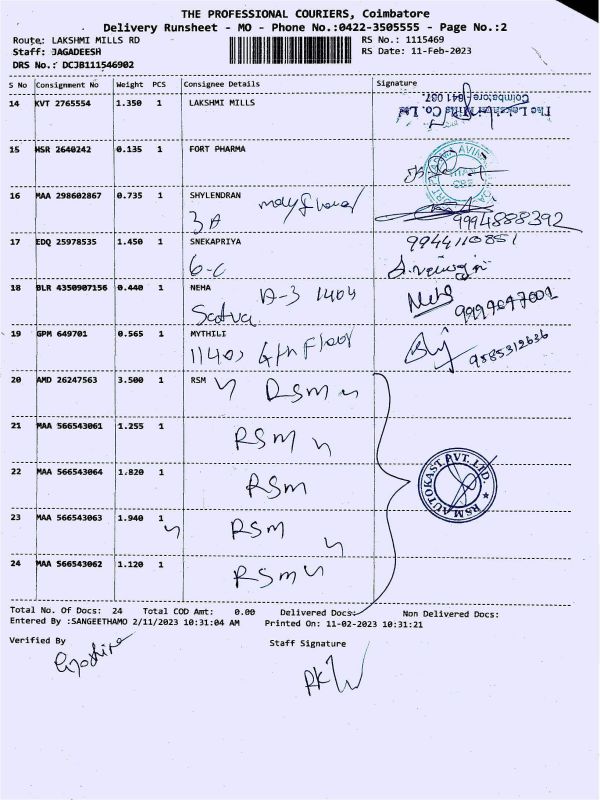 THE PROFESSIONAL COURIERS, Coimbatore
Delivery Runsheet - MO - Phone No.:0422-3505555 - Page No.:2
Route: LAKSHMI MILLS RD
RS No.: 1115469
Staff: JAGADEESH
RS Date: 11-Feb-2023
DRS No.: DCJB111546902
S No Consignment No Weight PCS Consignee Details Signature
14 KVT 2765554 1.350 1 LAKSHMI MILLS
The Lakshmi Mills Co. Ltd
Coimbatore - 641 037.
15 HSR 2640242 0.135 1 FORT PHARMA
16 MAA 298602867 0.735 1 SHYLENDRAN
3A
9994888392
17 EDQ 25978535 1.450 1 SNEKAPRIYA 9944110851
6-C
18 BLR 4350907156 0.440 1 NEHA
A-3 1404
19 GPM 649701 0.565 1 MYTHILI
4th Floor
9585312636
20 AMD 26247563 3.500 1 RSM RSM
21 MAA 566543061 1.255 1
RSM
22 MAA 566543064 1.820 1
RSM
RSM AUTOKAST PVT. LTD.
23 MAA 566543063 1.940 1
RSM
24 MAA 566543062 1.120 1
RSM
Total No. Of Docs: 24 Total COD Amt: 0.00 Delivered Docs: Non Delivered Docs:
Entered By :SANGEETHAMO 2/11/2023 10:31:04 AM Printed On: 11-02-2023 10:31:21
Verified By Staff Signature